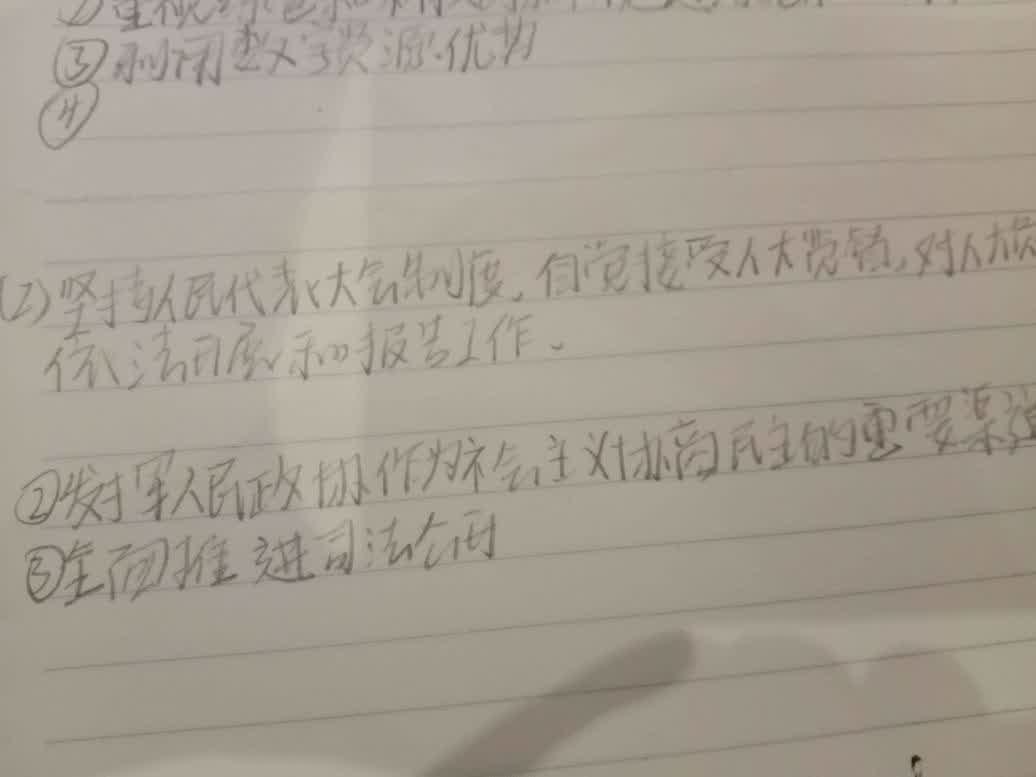 ②重视绿色和
③利用数字资源优势
④
(2)坚持人民代表大会制度,自觉接受人大监督,对人大负
依法开展和报告工作。
②发挥人民政协作为社会主义协商民主的重要渠道
③全面推进司法公开